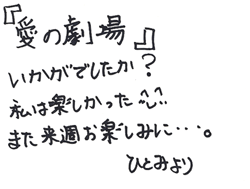 『愛の劇場』
いかがでしたか?
私は楽しかった^_^!!
また来週お楽しみに･･･。
ひとみより